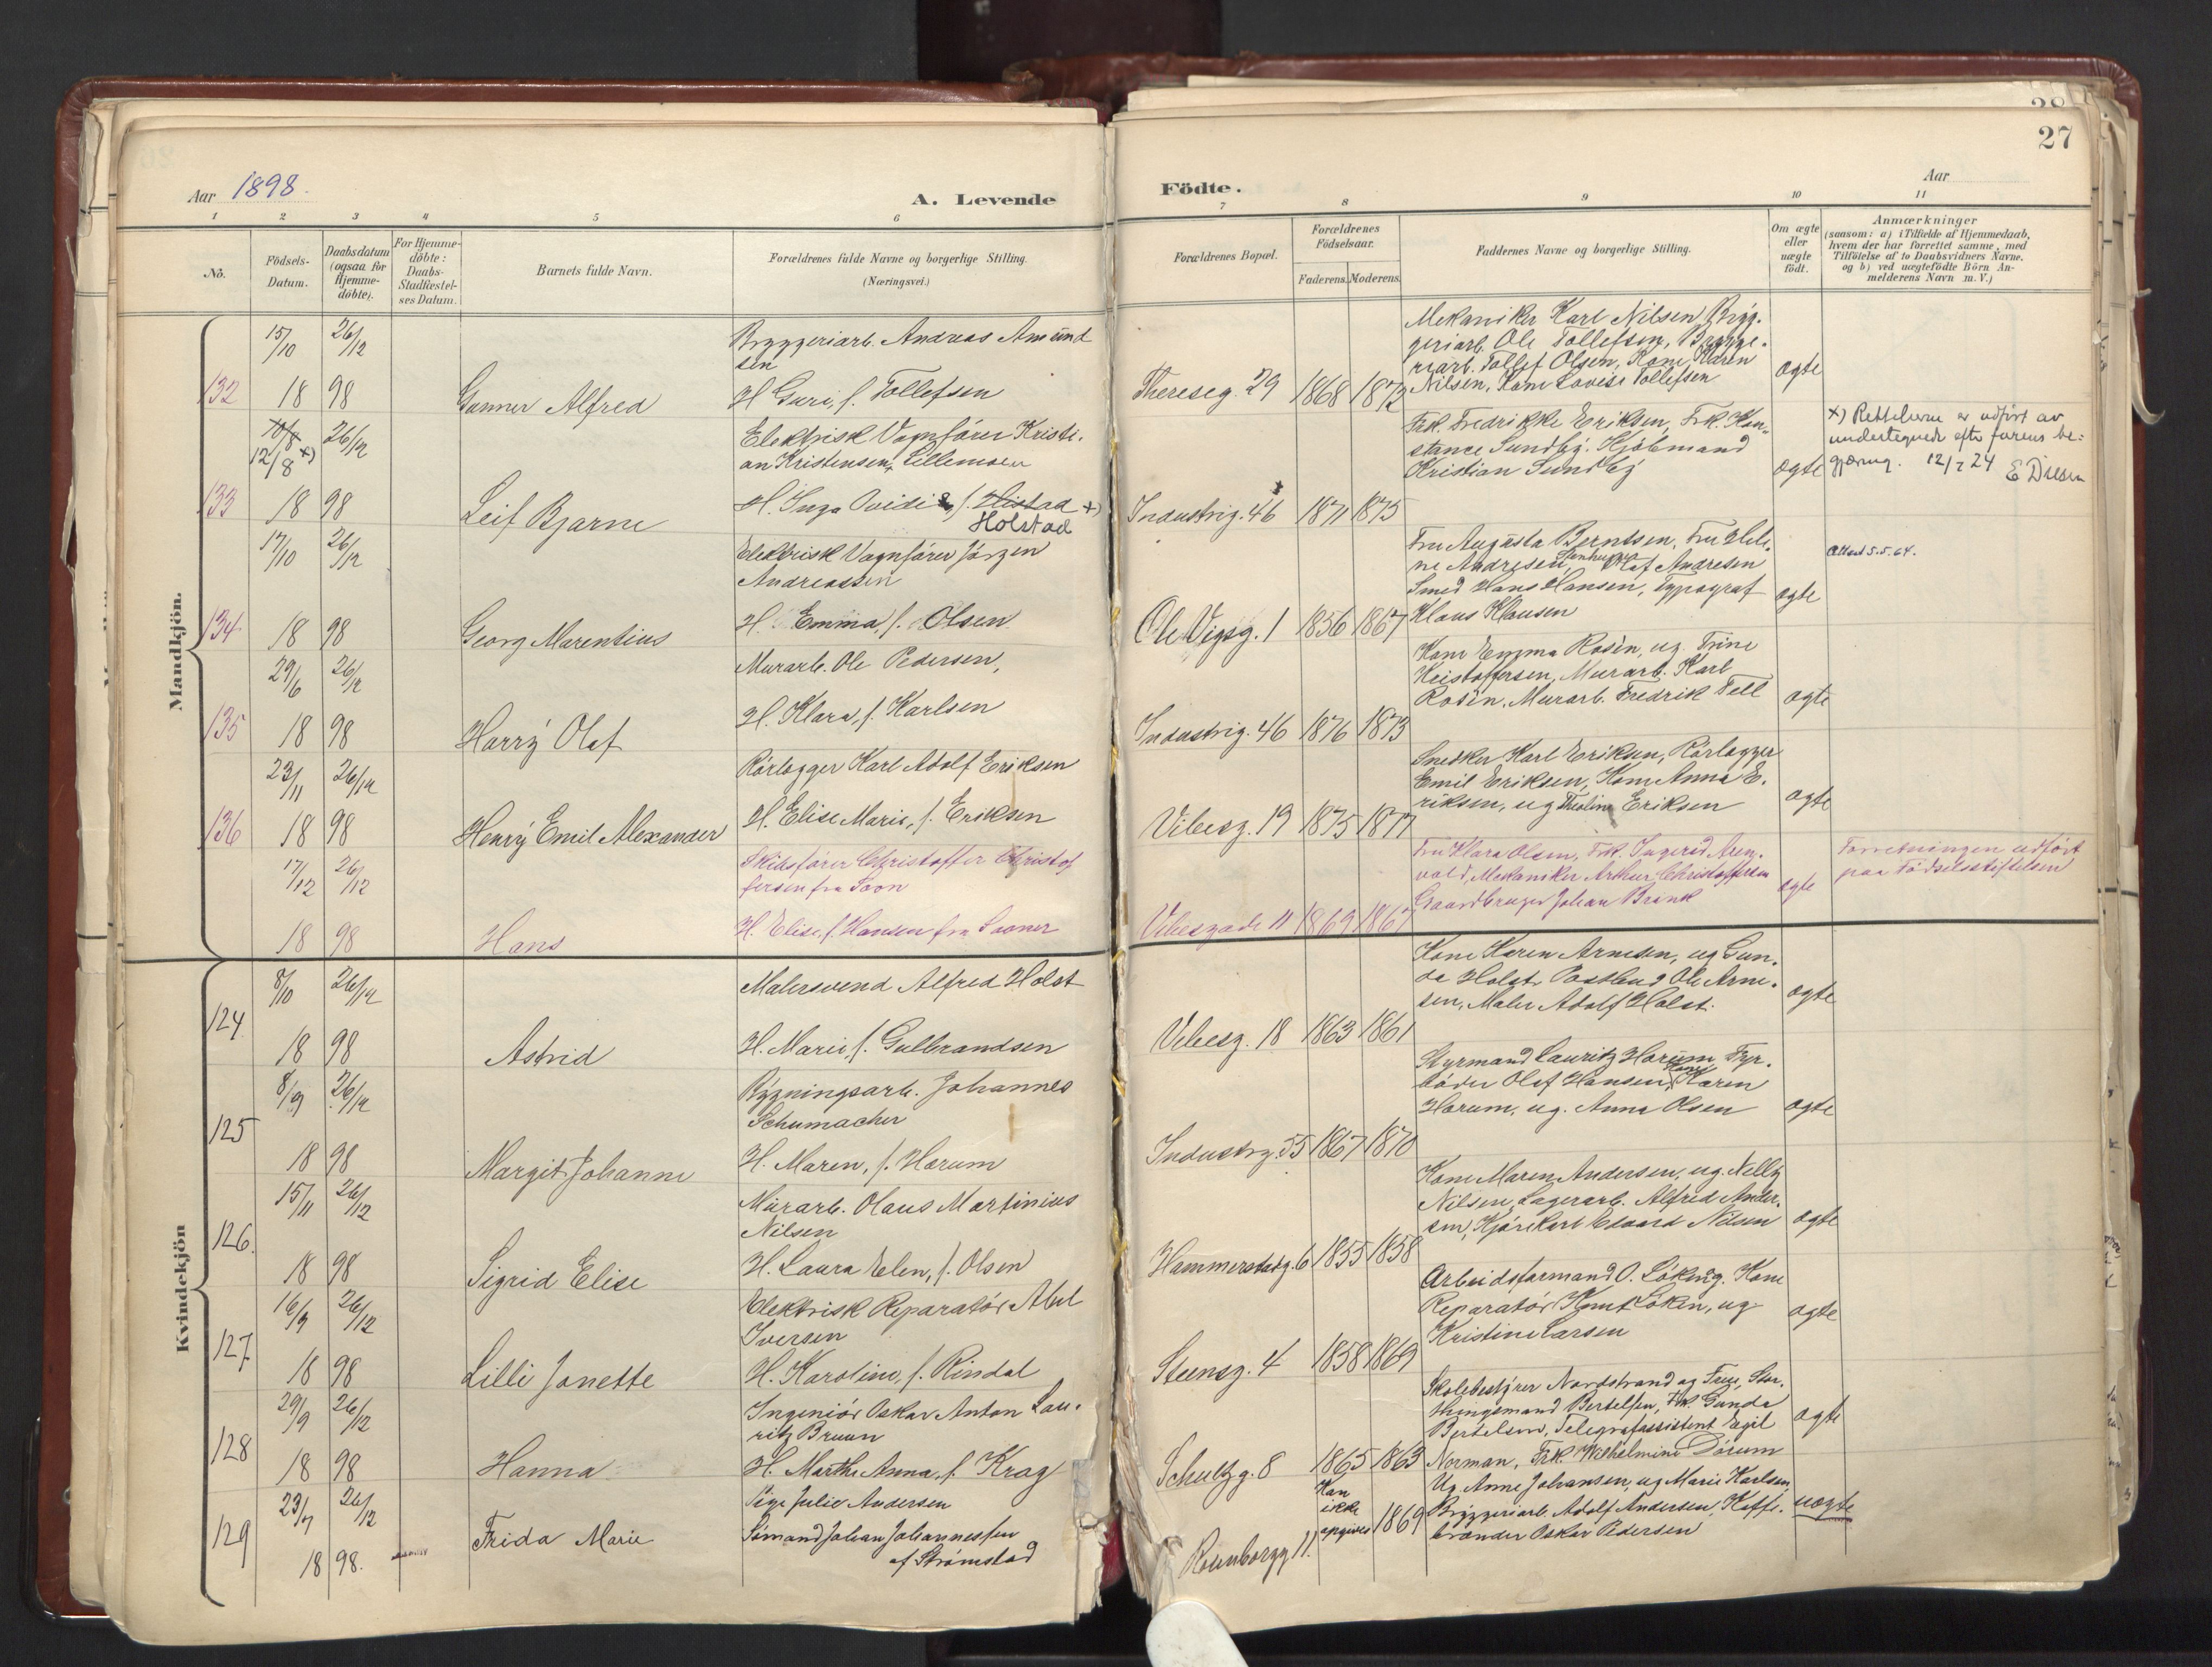 28
27
Aar 1898.
A. Levende
Födte.
Aar
1 2 3 4 5 6 7 8 9 10 11
No.
Födsels-Datum.
Daabsdatum (ogsaa for Hjemmedöbte).
For Hjemmedöbte: Daabs-Stadfæstelses Datum.
Barnets fulde Navn.
Forældrenes fulde Navne og borgerlige Stilling. (Næringsvei.)
Forældrenes Bopæl.
Forældrenes Födselsaar.
Faderens. Moderens.
Faddernes Navne og borgerlige Stilling.
Om ægte eller uægte födt.
Anmærkninger
(saasom: a) i Tilfælde af Hjemmedaab, hvem der har forrettet samme, med Tilföielse af to Daabsvidners Navne, og b) ved uægtefödte Börn Anmelderens Navn m. V.)
Mandkjön.
132
15/10 18
26/12 98
Gunner Alfred
Bryggeriarb. Andreas Amund
sen
H. Guri, f. Tollefsen
Thereseg. 29
1868 1872
Mekaniker Karl Nilsen, Bryg-
geriarb. Ole Tollefsen, Brygge-
riarb. Tollef Olsen, Kone Karen
Nilsen, Kone Lovise Tollefsen
ægte
133
10/8 12/8 x) 18
26/12 98
Leif Bjarne
Elektrisk Vognfører Kristi-
an Kristensen, Lillemoen
H. Inga Ovidia, f. Histad x)
Holstad
Industrig. 46
1871 1875
Frk. Fredrikke Eriksen, Frk. Kon-
stance Sundby. Kjöbmand
Kristian Sundby
ægte
x) Rettelserne er utført av
undertegnede efter farens be-
gjæring. 12/2 24
134
17/10 18
26/12 98
Georg Marentius
Elektrisk Vognfører Jörgen
Andreassen
H. Emma, f. Olsen
Ole Vigsg. 1
1856 1867
Fru Augusta Berntsen, Fru Heli-
ne Andresen, Stenhugger Olaf Andresen
Smed Hans Hansen, Typograf
Klaus Klausen
ægte
Attest 5.5.64.
135
29/6 18
26/12 98
Harry Olaf
Murarb. Ole Pedersen,
H. Klara, f. Karlsen
Industrig. 46
1876 1873
Kone Emma Rosén, ug. Trine
Kristoffersen, Murarb. Karl
Rosén, Murarb. Fredrik Tell
ægte
136
23/11 18
26/12 98
Henry Emil Alexander
Rörlægger Karl Adolf Eriksen
H. Elise Marie, f. Eriksen
Vibesg. 19
1875 1877
Snedker Karl Eriksen, Rörlægger
Emil Eriksen, Kone Anna E-
riksen, ug Theoline Eriksen
ægte
17/12 18
26/12 98
Hans
Skibsfører Christoffer Christof
fersen fra Soon
H. Elise f. Hansen fra Sooner
Vibesgade 11
1869 1867
Fru Klara Olsen, Frk. Ingerid Aren-
vold, Mekaniker Arthur Christoffersen
Gaardbruger Johan Brink
ægte
Forretningen udført
paa Fødselsstiftelsen
Kvindekjön
124
8/10 18
26/12 98
Astrid
Malersvend Alfred Holst
H. Marie, f. Gulbrandsen
Vibesg. 18
1863 1861
Kone Karen Arnesen, ug Gun-
da Holst, Postbud Ole Arne-
sen, Maler Adolf Holst.
ægte
125
8/9 18
26/12 98
Margit Johanne
Bygningsarb. Johannes
Schumacher
H. Maren, f. Horum
Industrg. 55
1867 1870
Styrmand Lauritz Horum, Fyr-
böder Olaf Hansen, Kone Karen
Horum, ug. Anna Olsen
ægte
126.
15/11 18
26/12 98
Sigrid Elise
Murarb. Olaus Martinius
Nilsen
H. Laura Elen, f. Olsen
Hammerstadg. 6
1855 1858
Kone Maren Andersen, ug. Nelly
Nilsen, Lagerarb. Alfred Ander-
sen, Kjörekarl Edvard Nilsen
ægte
127
16/9 18
26/12 98
Lilli Jonette
Elektrisk Reparatör Abel
Iversen
H. Karoline, f. Rindal
Steensg. 4
1858 1869
Arbeidsformand O. Löken g. Kone
Reparatör Knut Löken, ug
Kristine Larsen
ægte
128
29/9 18
26/12 98
Hanna
Ingeniör Oskar Anton Lau-
ritz Bruun
H. Marthe Anna, f. Krag
Schultzg. 8
1865 1863
Skolebestyrer Nordstrand og Frue, Stor-
thingsmand Bertelsen, Frk. Gunda
Bertelsen, Telegrafassistent Egil
Norman, Frk. Wilhelmine Dörum
ægte
129
23/7 18
26/12 98.
Frida Marie
Pige Julie Andersen
Sömand Johan Johannessen
af Strömstad
Rosenborgg 11.
Kan
ikke
opgives
1869
Ug. Anne Johansen, ug Marie Karlsen,
Bryggeriarb. Adolf Andersen, Kaffe-
brænder Oskar Pedersen
uægte